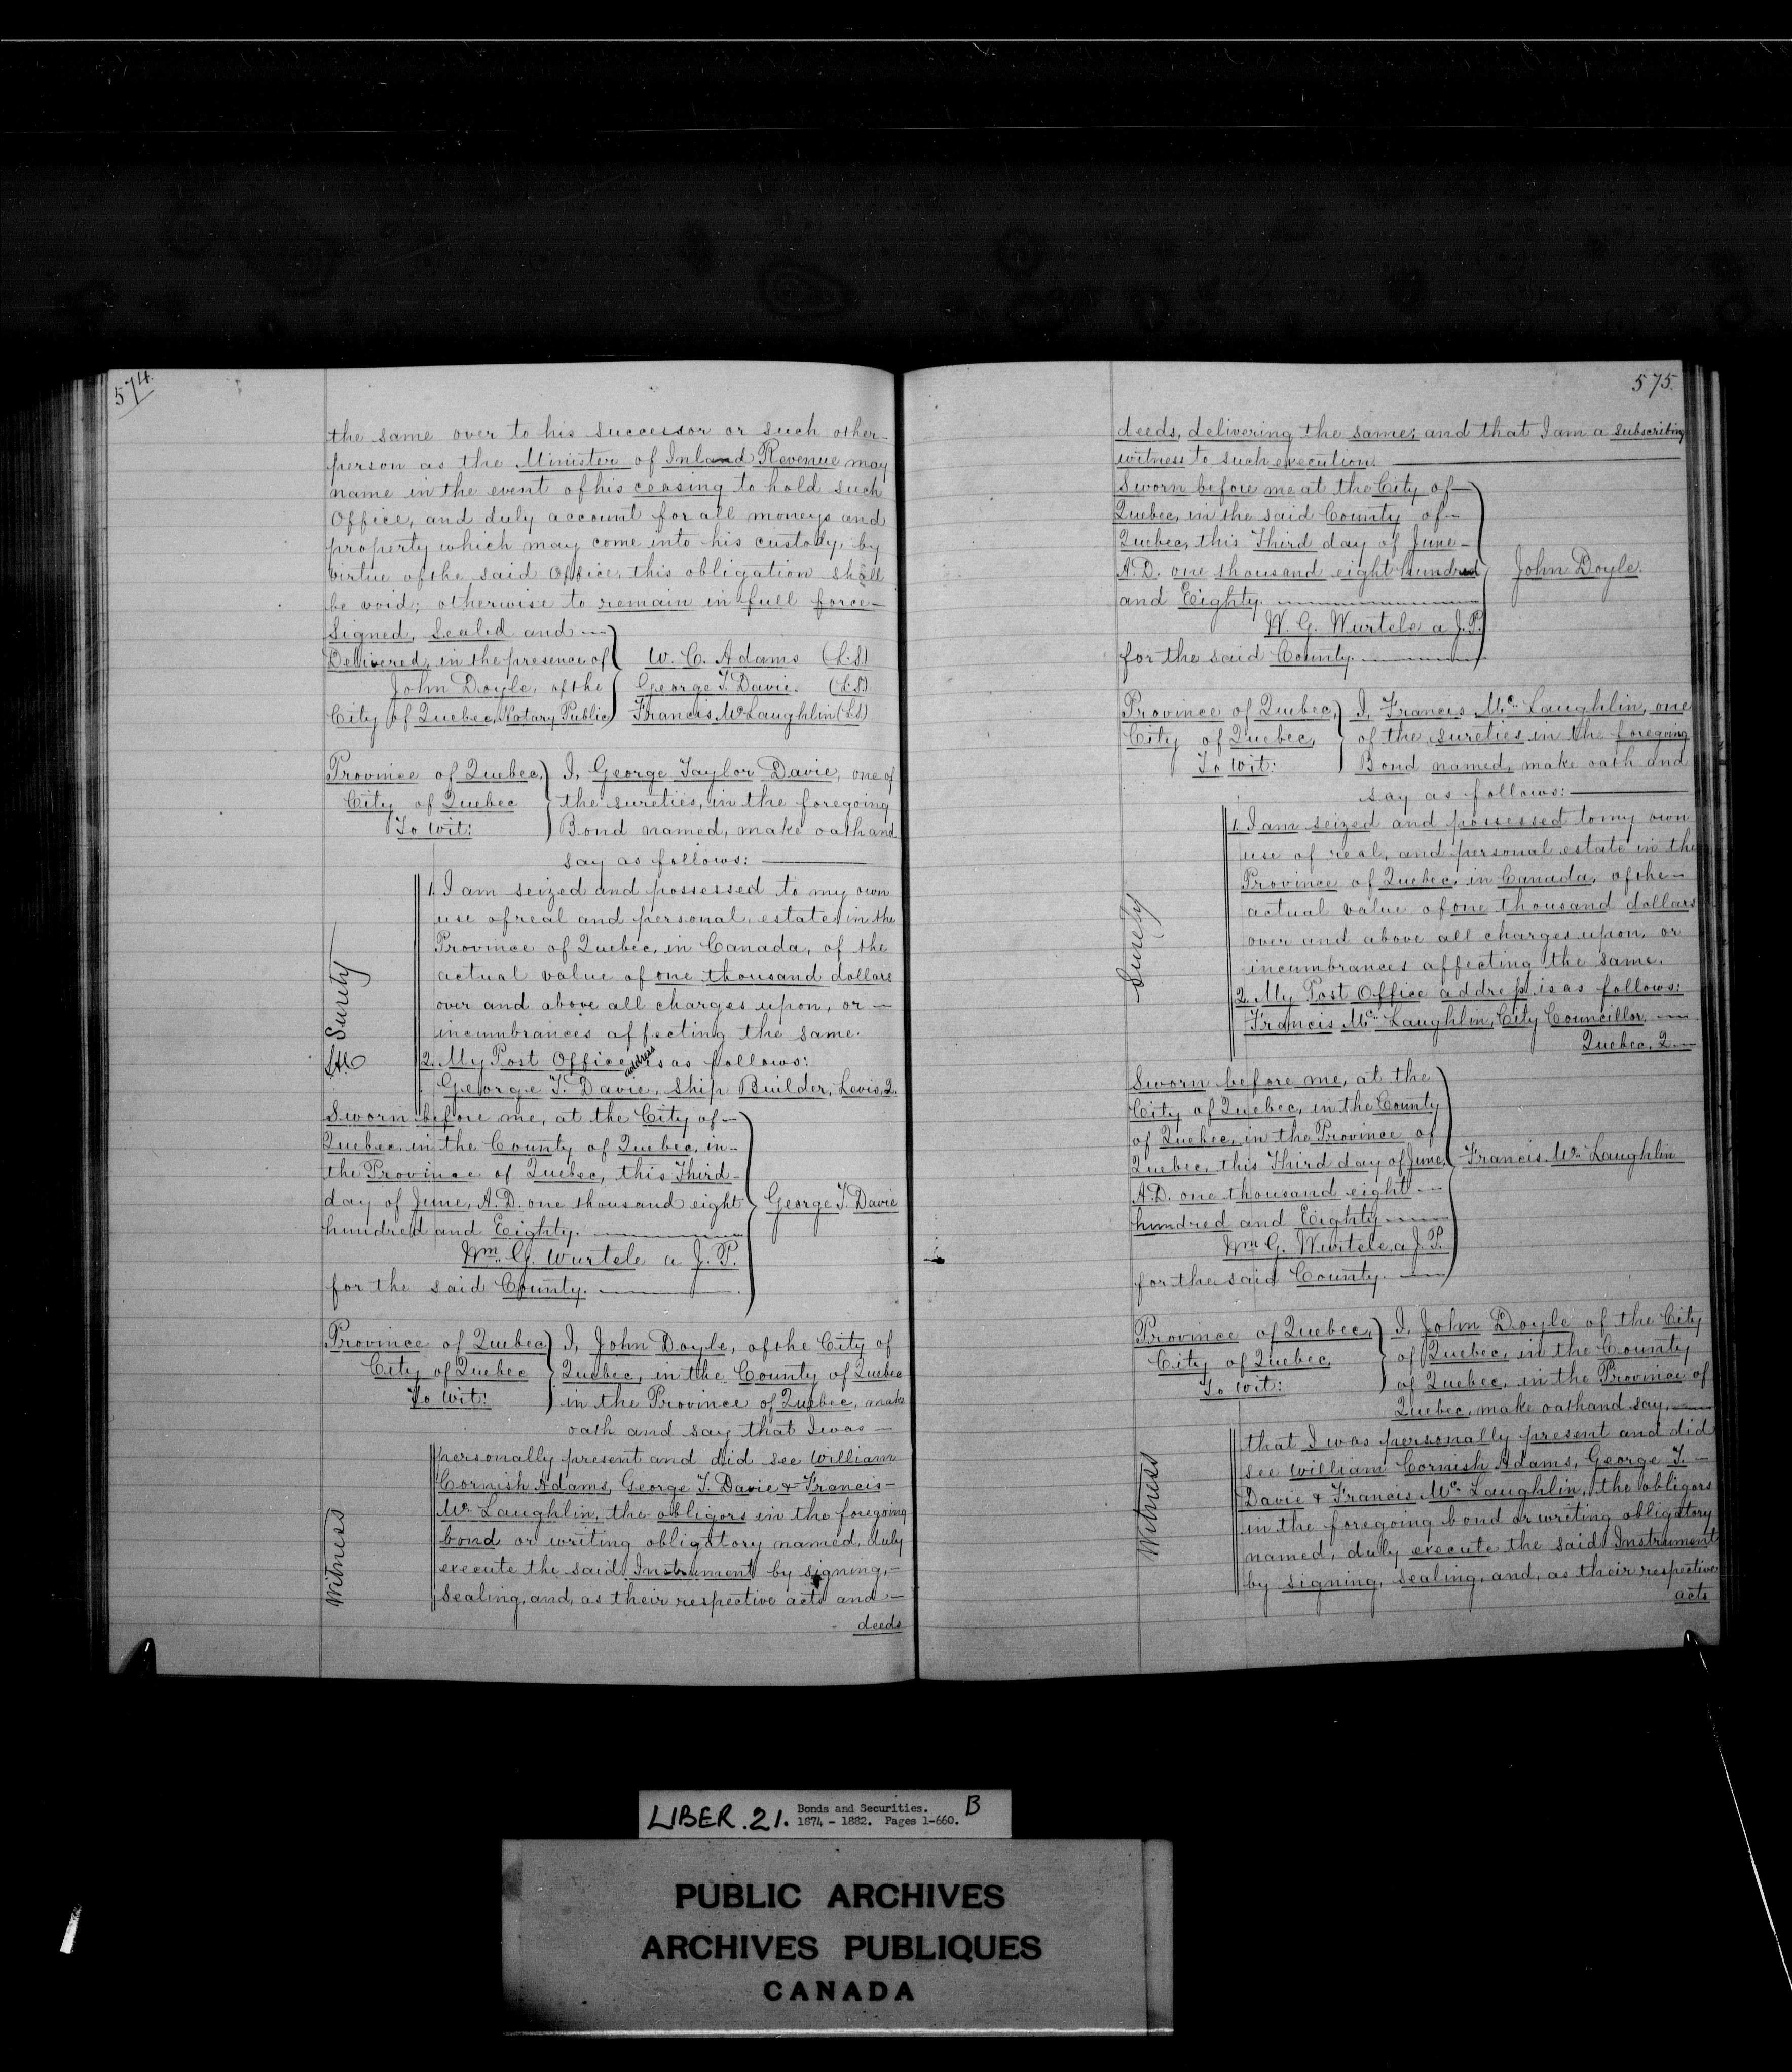 574.
the same over to his successor or such other-
person as the Minister of Inland Revenue may
name in the event of his ceasing to hold such
Office, and duly account for all moneys and
property which may come into his custody, by
virtue of the said Office, this obligation shall
be void; otherwise to remain in full force—
Signed, Sealed and —
Delivered, in the presence of
John Doyle, of the
City of Quebec, Notary Public
W. C. Adams (L.S.)
George T. Davie. (L.S.)
Francis McLaughlin (L.S.)
Province of Quebec,
City of Quebec
To Wit:
I, George Taylor Davie, one of
the sureties, in the foregoing
Bond named, make oath and
say as follows: —
Surety
1. I am seized and possessed to my own
use of real and personal, estate in the
Province of Quebec, in Canada, of the
actual value of one thousand dollars
over and above all charges upon, or —
incumbrances affecting the same.
2. My Post Office address is as follows:
George T. Davie, Ship Builder, Levis, Q.
Sworn before me, at the City of —
Quebec, in the County of Quebec, in-
the Province of Quebec, this Third-
day of June, A.D. one thousand eight
hundred and Eighty. —
Wm. G. Wurtele a J. P.
for the said County. —
George T. Davie
Province of Quebec
City of Quebec
To Wit:
I, John Doyle, of the City of
Quebec, in the County of Quebec
in the Province of Quebec, make
oath and say that I was —
Witness
personally present and did see William
Cornish Adams, George T. Davie & Francis-
Mc Laughlin, the obligors in the foregoing
bond or writing obligatory named, duly
execute the said Instrument by signing,-
Sealing, and, as their respective acts and —
deeds
575.
deeds, delivering the same; and that I am a subscribing
witness to such execution. —
Sworn before me at the City of —
Quebec, in the said County of —
Quebec, this Third day of June —
A.D. one thousand eight hundred
and Eighty. —
W. G. Wurtele a J.P.
for the said County. —
John Doyle.
Province of Quebec,
City of Quebec,
To Wit:
I, Francis Mc Laughlin, one
of the sureties in the foregoing
Bond named, make oath and
say as follows: —
Surety
1. I am seized and possessed to my own
use of real, and personal estate in the
Province of Quebec, in Canada, of the —
actual value of one thousand dollars
over and above all charges upon, or
incumbrances affecting the same.
2. My Post Office address is as follows:
Francis Mc Laughlin, City Councillor. —
Quebec, Q —
Sworn before me, at the
City of Quebec, in the County
of Quebec, in the Province of
Quebec, this Third day of June,
A.D. one thousand eight —
hundred and Eighty —
Wm G. Wurtele, a J. P.
for the said County. —
Francis Mc Laughlin
Province of Quebec,
City of Quebec,
To Wit:
I, John Doyle of the City
of Quebec, in the County
of Quebec, in the Province of
Quebec, make oath and say, —
Witness
that I was personally present and did
see William Cornish Adams, George T. —
Davie & Francis Mc Laughlin, the obligors
in the foregoing bond or writing obligatory
named, duly execute the said Instrument
by signing, sealing, and, as their respective
acts
LIBER. 21. Bonds and Securities. B
1874 - 1882. Pages 1-660.
PUBLIC ARCHIVES
ARCHIVES PUBLIQUES
CANADA